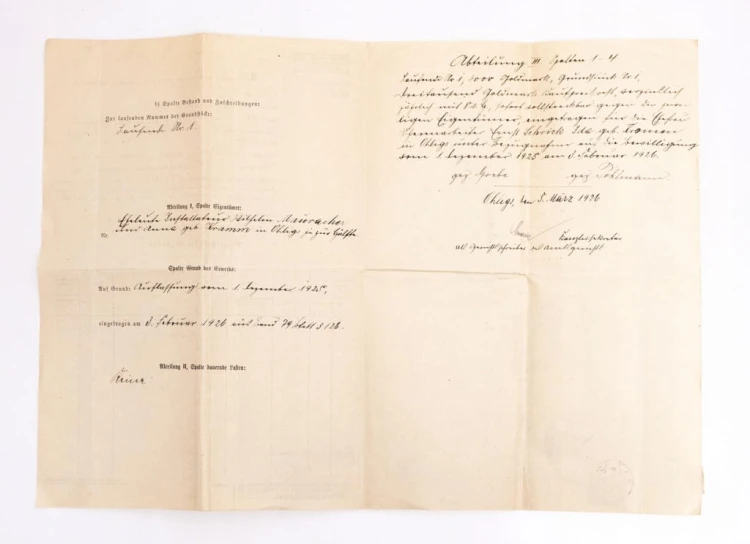 b) Spalte Bestand und Zuschreibungen:
Zur laufenden Nummer der Grundstücke:
Laufende Nr. 1.
Abteilung I, Spalte Eigentümer:
Eheleute Installateur Wilhelm
Nr. und Anna geb. Kramm in Ohligs je zur Hälfte
Spalte Grund des Erwerbs:
Auf Grund: Auflassung vom 1. Dezember 1925,
eingetragen am 3. Februar 1926 aus Band 79 Blatt
Abteilung II, Spalte dauernde Lasten:
Keine
Abteilung III Spalten 1-4
Laufende Nr 1, 3000 Goldmark, Grundstück Nr. 1,
Dreitausend Goldmark Kaufpreisrest, verzinslich
jährlich mit sofort vollstreckbar gegen den jewei-
ligen Eigentümer, eingetragen für die Ehefrau
Ernst geb.
in Ohligs unter Bezugnahme auf die Bewilligung
vom 1. Dezember 1925 am 3. Februar 1926.
gez. Grebe gez. Pohlmann
Ohligs, den 5. März 1926
Kanzleisekretär
als Gerichtsschreiber des Amtsgerichts